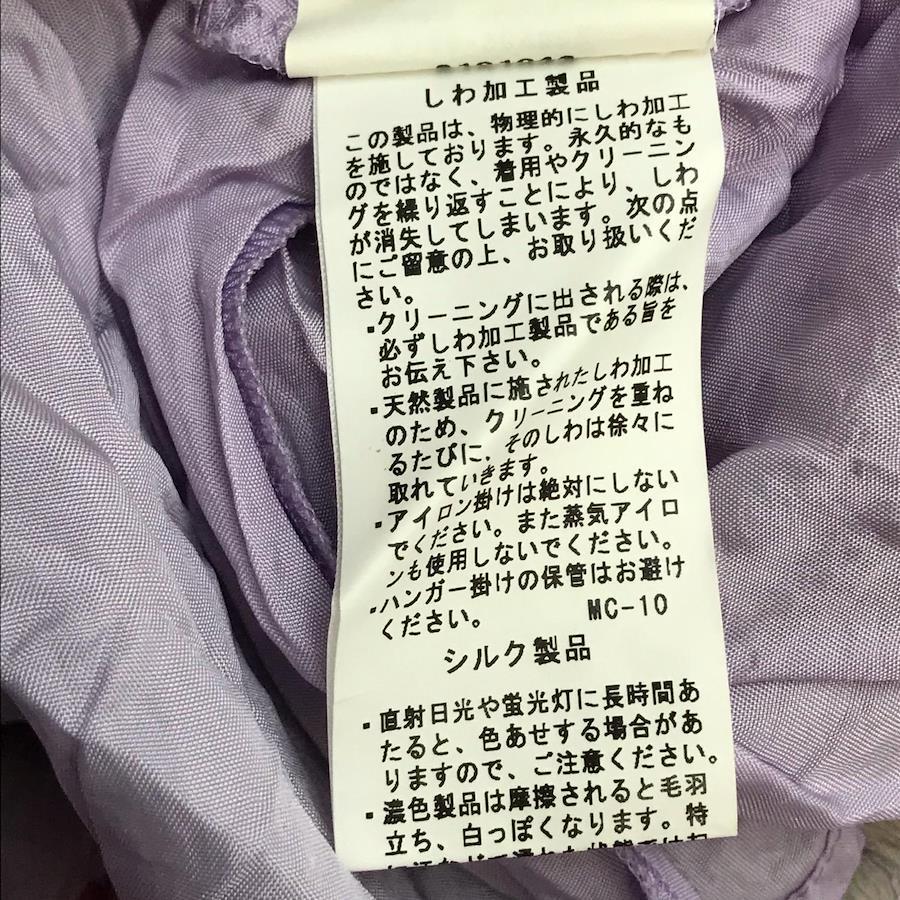 しわ加工製品
この製品は、物理的にしわ加工
を施しております。永久的なも
のではなく、着用やクリーニン
グを繰り返すことにより、しわ
が消失してしまいます。次の点
にご留意の上、お取り扱いくだ
さい。
▪クリーニングに出される際は、
必ずしわ加工製品である旨を
お伝え下さい。
▪天然製品に施されたしわ加工
のため、クリーニングを重ね
るたびに、そのしわは徐々に
取れていきます。
▪アイロン掛けは絶対にしない
でください。また蒸気アイロ
ンも使用しないでください。
▪ハンガー掛けの保管はお避け
ください。 MC-10
シルク製品
▪直射日光や蛍光灯に長時間あ
たると、色あせする場合があ
りますので、ご注意ください。
▪濃色製品は摩擦されると毛羽
立ち、白っぽくなります。特